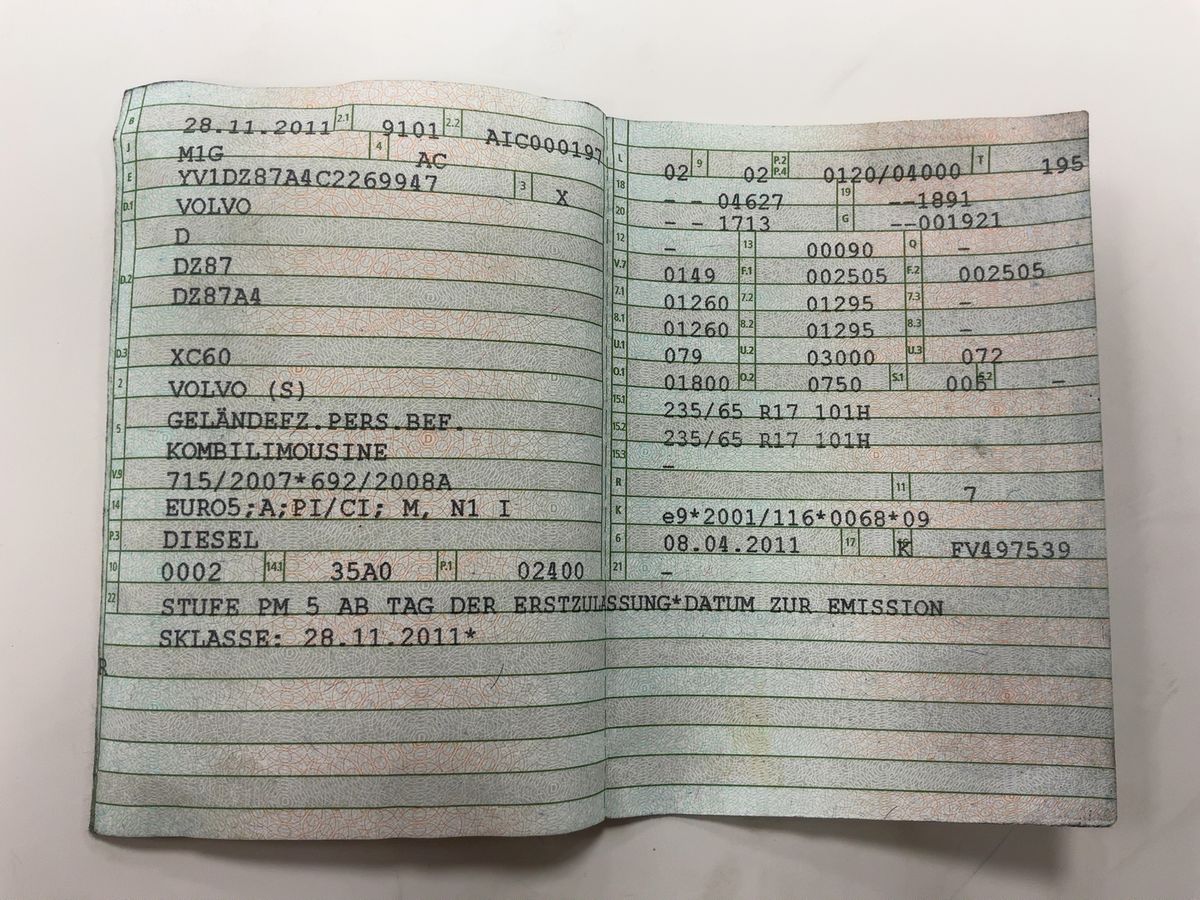 B 28.11.2011 2.1 9101 2.2 AIC000197
J M1G 4 AC
E YV1DZ87A4C2269947 3 X
D.1 VOLVO
D
D.2 DZ87
DZ87A4
D.3 XC60
2 VOLVO (S)
5 GELÄNDEFZ.PERS.BEF.
KOMBILIMOUSINE
V.9 715/2007*692/2008A
14 EURO5;A;PI/CI; M, N1 I
P.3 DIESEL
10 0002 14.1 35A0 P.1 02400
L 02 9 02 P.2 P.4 0120/04000 T 195
18 - - 04627 19 --1891
20 - - 1713 G --001921
12 - 13 00090 Q -
V.7 0149 F.1 002505 F.2 002505
7.1 01260 7.2 01295 7.3 -
8.1 01260 8.2 01295 8.3 -
U.1 079 U.2 03000 U.3 072
O.1 01800 O.2 0750 S.1 005 S.2 -
15.1 235/65 R17 101H
15.2 235/65 R17 101H
15.3 -
R 11 7
K e9*2001/116*0068*09
6 08.04.2011 17 K 16 FV497539
21 -
22 STUFE PM 5 AB TAG DER ERSTZULASSUNG*DATUM ZUR EMISSION
SKLASSE: 28.11.2011*
R